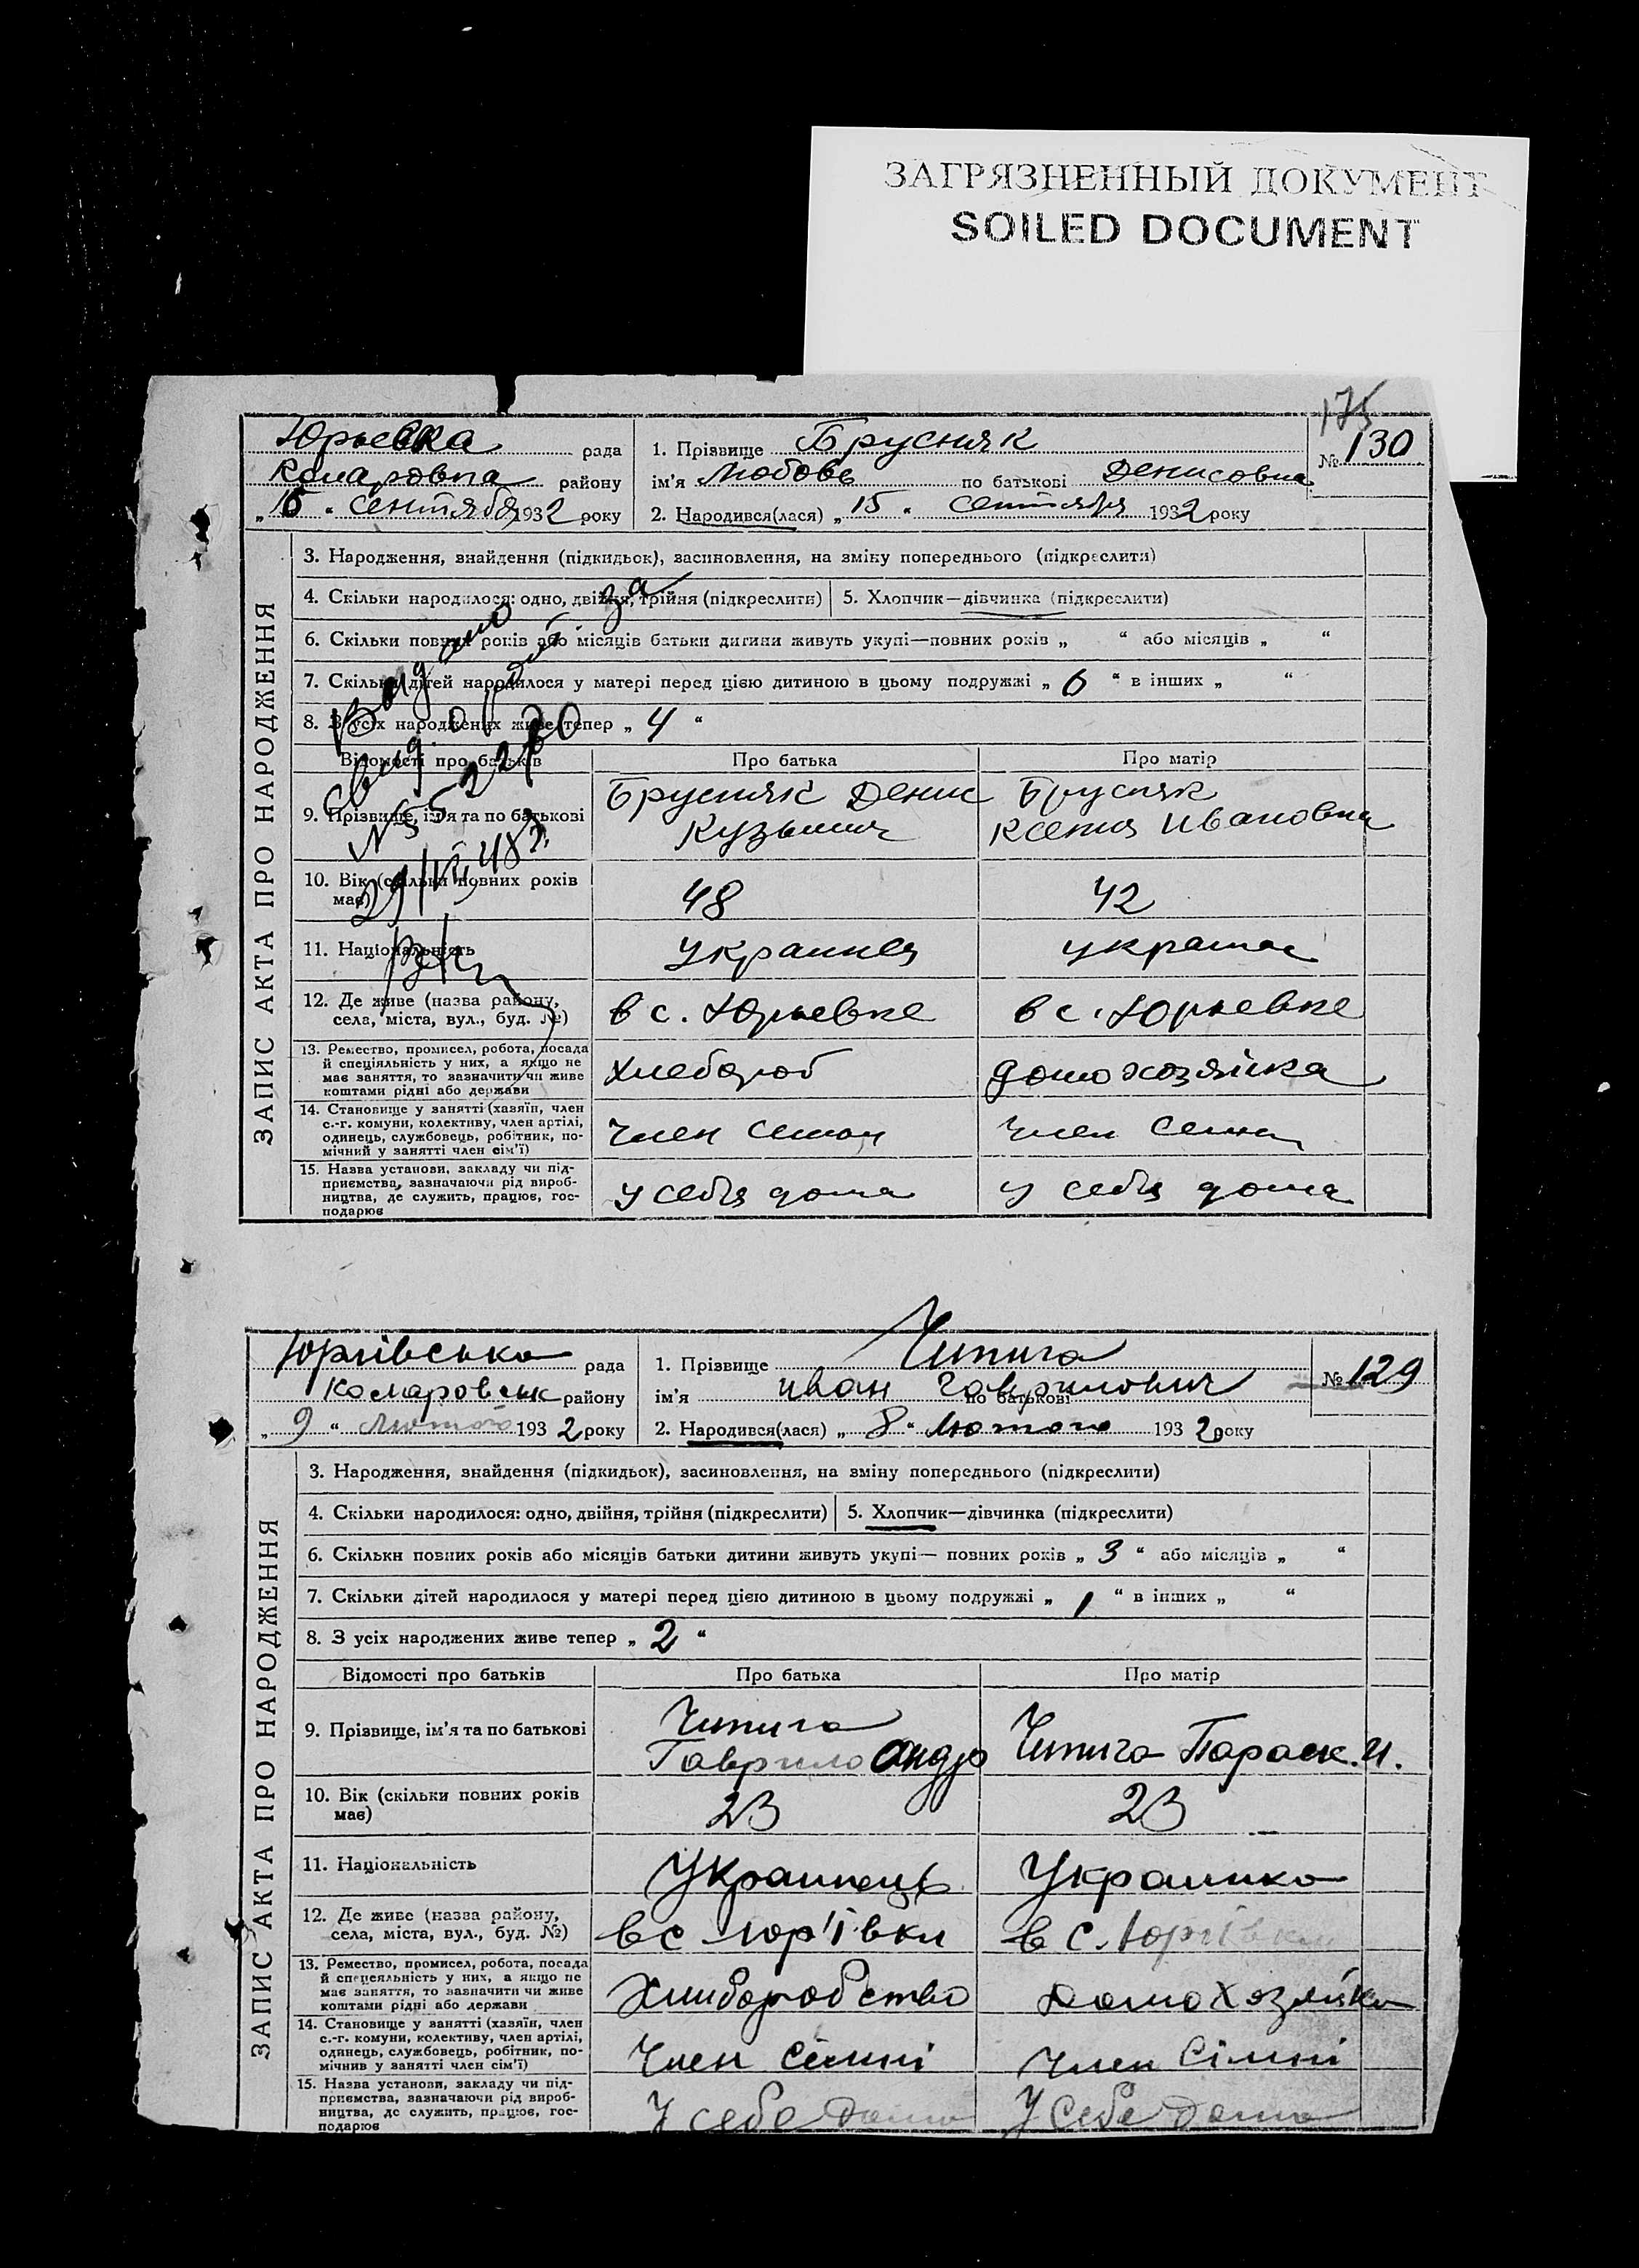 ЗАГРЯЗНЕННЫЙ ДОКУМЕНТ
SOILED DOCUMENT
175
Юрьевка рада
1. Прізвище Брусняк
№ 130
Комаровка району
ім'я Любовь по батькові Денисовна
„15“ сентября 1932 року
2. Народився(лася) „15“ сентября 1932 року
ЗАПИС АКТА ПРО НАРОДЖЕННЯ
3. Народження, знайдення (підкидьок), засиновлення, на зміну попереднього (підкреслити)
4. Скільки народилося: одно, двійня, трійня (підкреслити) 5. Хлопчик—дівчинка (підкреслити)
6. Скільки повних років або місяців батьки дитини живуть укупі—повних років „ “ або місяців „ “
7. Скільки дітей народилося у матері перед цією дитиною в цьому подружжі „6“ в інших „ “
8. З усіх народжених живе тепер „4“
Видано
свид. о рожд. за
№
29/VII 48 г.
Відомості про батьків Про батька Про матір
9. Прізвище, ім'я та по батькові
Брусняк Денис
Кузьмич
Брусняк
Ксения Ивановна
10. Вік (скільки повних років
має)
48 42
11. Національність украинец украин
12. Де живе (назва району,
села, міста, вул., буд. №)
в с. Юрьевке в с. Юрьевке
13. Ремество, промисел, робота, посада
й спеціяльність у них, а якщо не
має заняття, то зазначити чи живе
коштами рідні або держави
хлебороб домохозяйка
14. Становище у занятті (хазяїн, член
с.-г. комуни, колективу, член артілі,
одинець, службовець, робітник, по-
мічний у занятті член сім'ї)
член семьи член семьи
15. Назва установи, закладу чи під-
приємства, зазначаючи рід вироб-
ництва, де служить, працює, гос-
подарює
у себя дома у себя дома
Юріївська рада
1. Прізвище Чипига
№ 129
Комаровськ району
ім'я Иван по батькові Гаврилович
„9“ лютого 1932 року
2. Народився(лася) „8“ Лютого 1932 року
ЗАПИС АКТА ПРО НАРОДЖЕННЯ
3. Народження, знайдення (підкидьок), засиновлення, на зміну попереднього (підкреслити)
4. Скільки народилося: одно, двійня, трійня (підкреслити) 5. Хлопчик—дівчинка (підкреслити)
6. Скільки повних років або місяців батьки дитини живуть укупі— повних років „3“ або місяців „ “
7. Скільки дітей народилося у матері перед цією дитиною в цьому подружжі „1“ в інших „ “
8. З усіх народжених живе тепер „2“
Відомості про батьків Про батька Про матір
9. Прізвище, ім'я та по батькові
Чипига
Гаврило Андр
Чипига Параск. И.
10. Вік (скільки повних років
має)
23 23
11. Національність Украинець Украинка
12. Де живе (назва району,
села, міста, вул., буд. №)
в с Юр'івки в с. Юріівки
13. Ремество, промисел, робота, посада
й спецеяльність у них, а якщо не
має заняття, то зазначити чи живе
коштами рідні або держави
Хлиборобство Домохозяйка
14. Становище у занятті (хазяїн, член
с.-г. комуни, колективу, член артілі,
одинець, службовець, робітник, по-
мічнив у занятті член сім'ї)
Член сімпі Член Сімпі
15. Назва установи, закладу чи під-
приємства, зазначаючи рід вироб-
ництва, де служить, працює, гос-
подарює
У себе дома У Себе дома